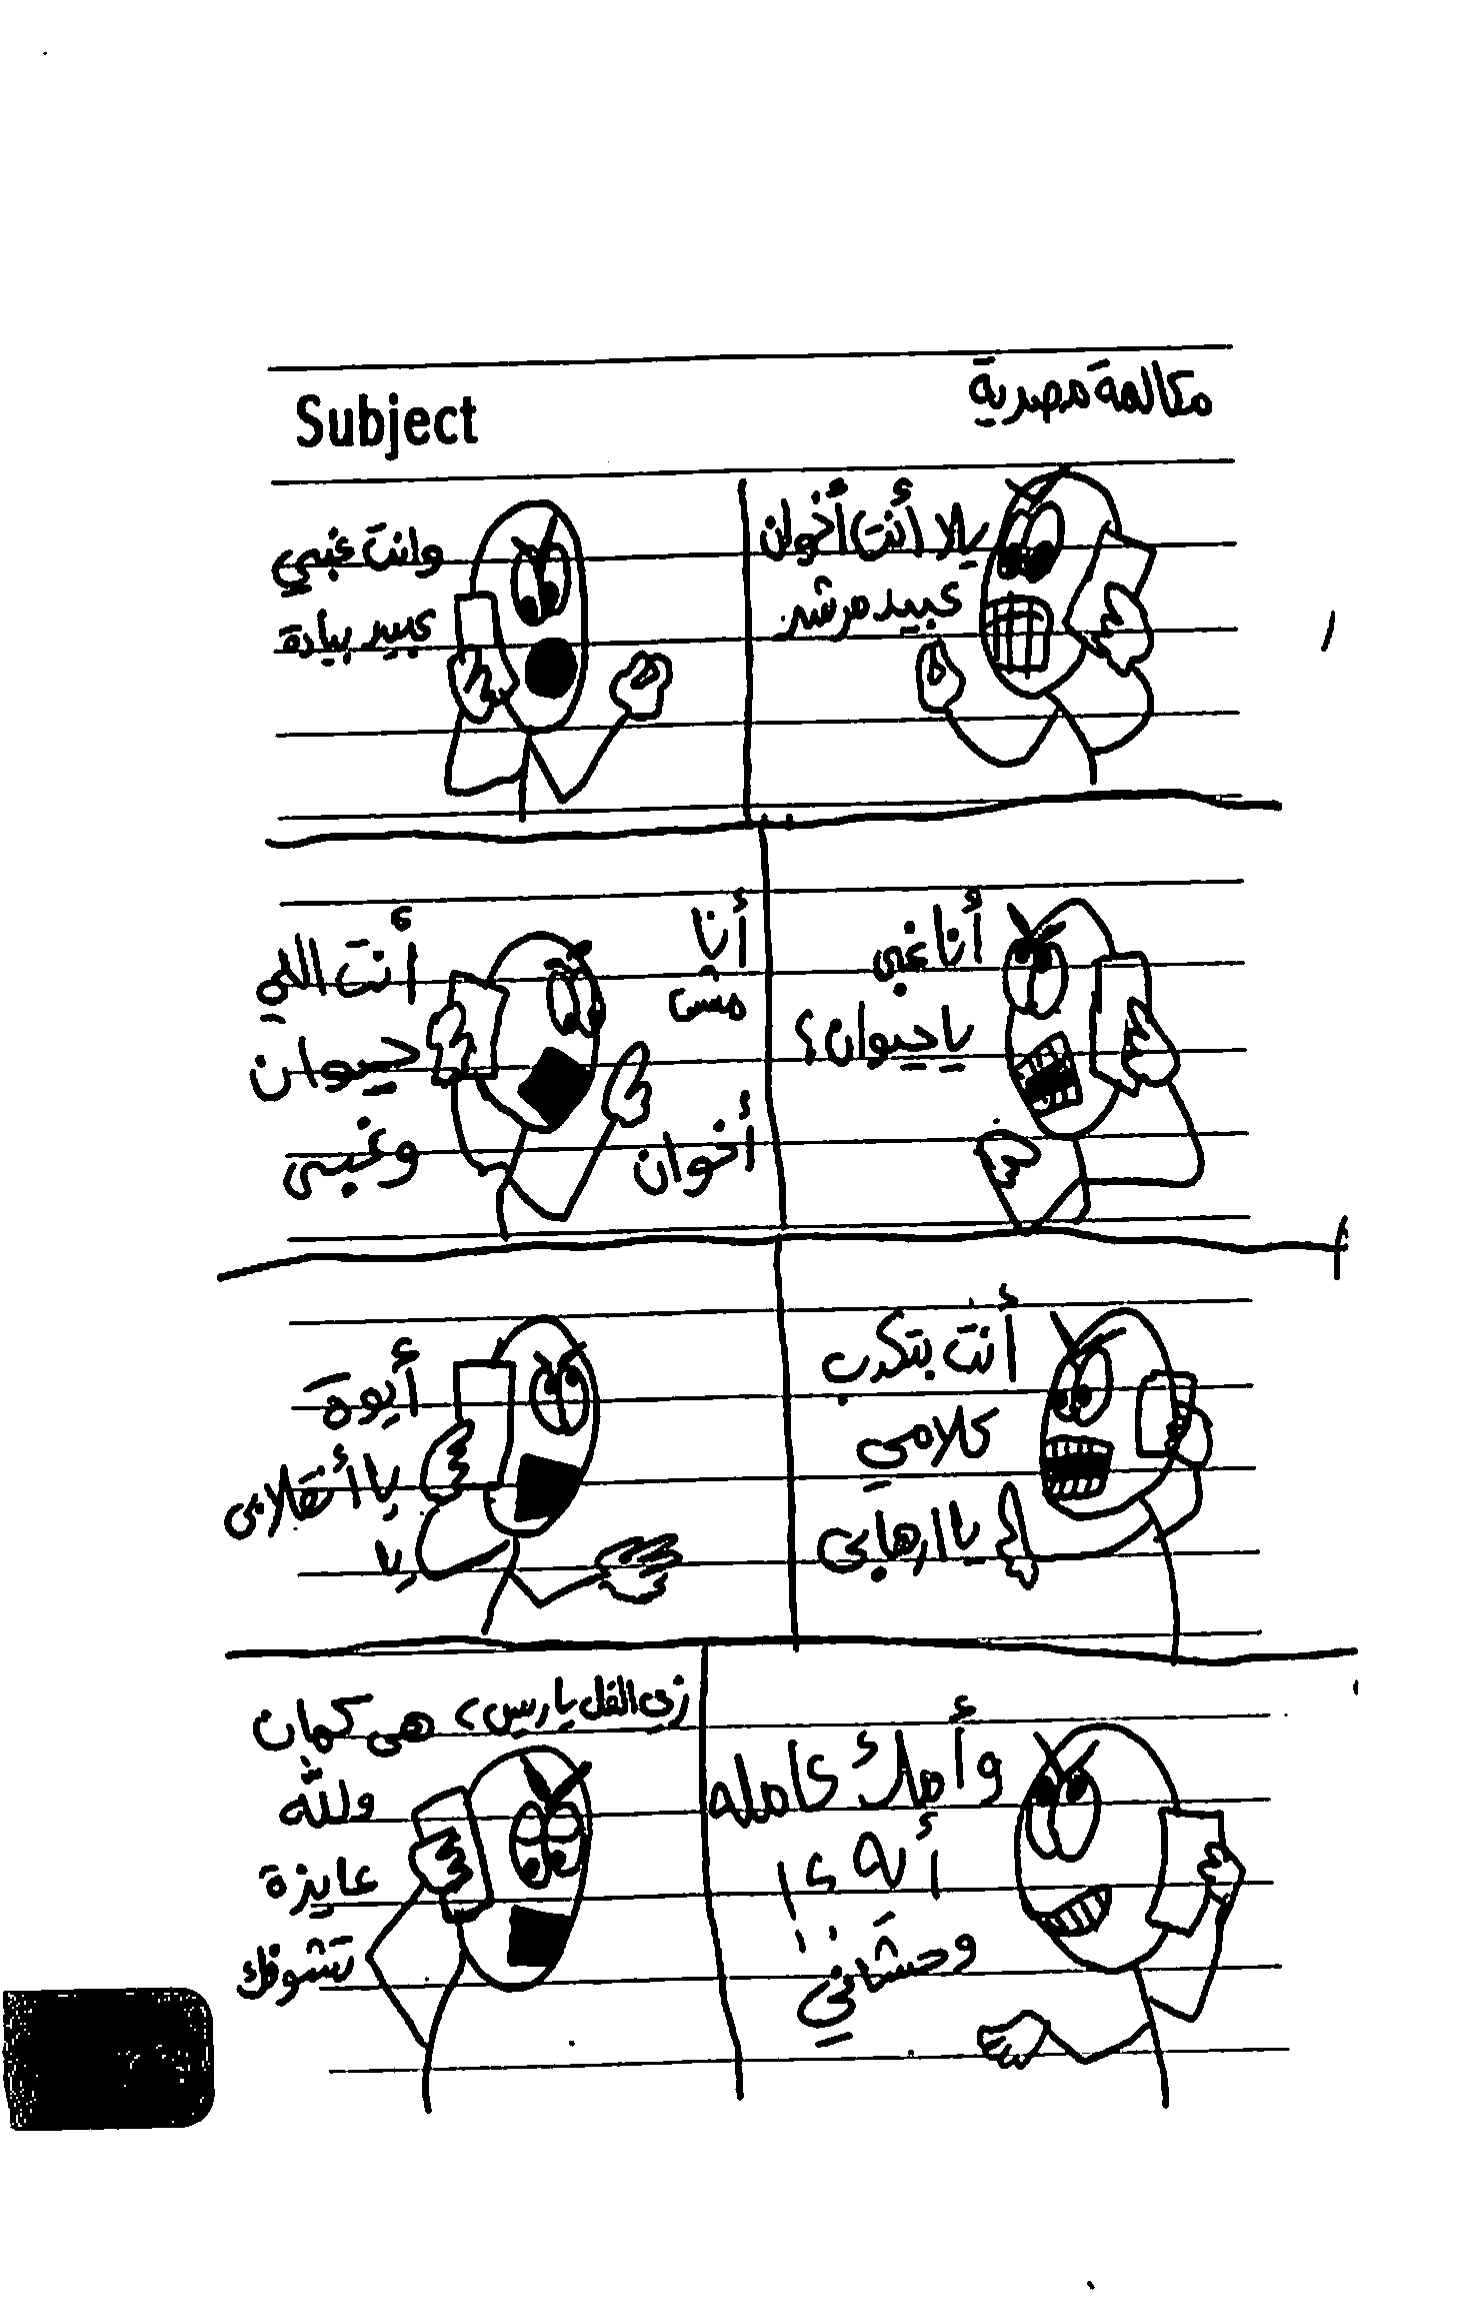 مكالمة مصرية
Subject
يلا أنت أخوان
عبيد مرشد
وانت غبي
عبيد بيادة
أنا غبي
يا حيوان ؟
أنا
مش
أخوان
أنت اللي
حيوان
وغبي
أنت بتكدب
كلامي
يا ارهابي
أيوة
يا أنقلابي
يا
وأمك عامله
أيه
وحشاني
زي الفل يا ريس، هي كمان
والله
عايزة
تشوفك